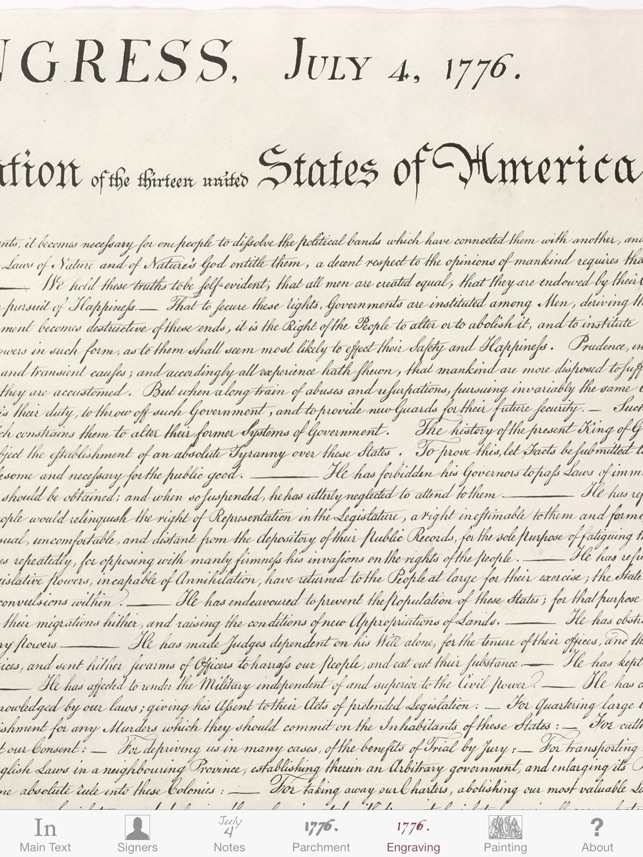 NGRESS, JULY 4, 1776.
ation of the thirteen united States of America
ents, it becomes necessary for one people to dissolve the political bands which have connected them with another, and
Laws of Nature and of Nature's God entitle them, a decent respect to the opinions of mankind requires tha
We hold these truths to be self-evident, that all men are created equal, that they are endowed by their
pursuit of Happiness.— That to secure these rights, Governments are instituted among Men, deriving th
ment becomes destructive of these ends, it is the Right of the People to alter or to abolish it, and to institute
owers in such form, as to them shall seem most likely to effect their Safety and Happiness. Prudence, in
and transient causes; and accordingly all experience hath shewn, that mankind are more disposed to suff
they are accustomed. But when a long train of abuses and usurpations, pursuing invariably the same
is their duty, to throw off such Government, and to provide new Guards for their future security.— Suc
ch constrains them to alter their former Systems of Government. The history of the present King of G
bject the establishment of an absolute Tyranny over these States. To prove this, let Facts be submitted t
lesome and necessary for the public good. — He has forbidden his Governors to pass Laws of imm
should be obtained; and when so suspended, he has utterly neglected to attend to them — He has re
ople would relinquish the right of Representation in the Legislature, a right inestimable to them and form
sual, uncomfortable, and distant from the depository of their Public Records, for the sole purpose of fatiguing th
es repeatedly, for opposing with manly firmness his invasions on the rights of the people. — He has refu
gislative powers, incapable of Annihilation, have returned to the People at large for their exercise; the State
convulsions within. — He has endeavoured to prevent the population of these States; for that purpose
their migrations hither, and raising the conditions of new Appropriations of Lands. — He has obst
ry powers — He has made Judges dependent on his Will alone, for the tenure of their offices, and the
ices, and sent hither swarms of Officers to harrass our people, and eat out their substance — He has kept
— He has affected to render the Military independent of and superior to the Civil power. — He has c
nowledged by our laws; giving his Assent to their Acts of pretended Legislation: — For Quartering large
ishment for any Murders which they should commit on the Inhabitants of these States: — For cutt
t our Consent: — For depriving us in many cases, of the benefits of Trial by Jury: — For transporting
glish Laws in a neighbouring Province, establishing therein an Arbitrary government, and enlarging its
me absolute rule into these Colonies: — For taking away our Charters, abolishing our most valuable La
In July 4 1776. 1776. ?
Main Text Signers Notes Parchment Engraving Painting About